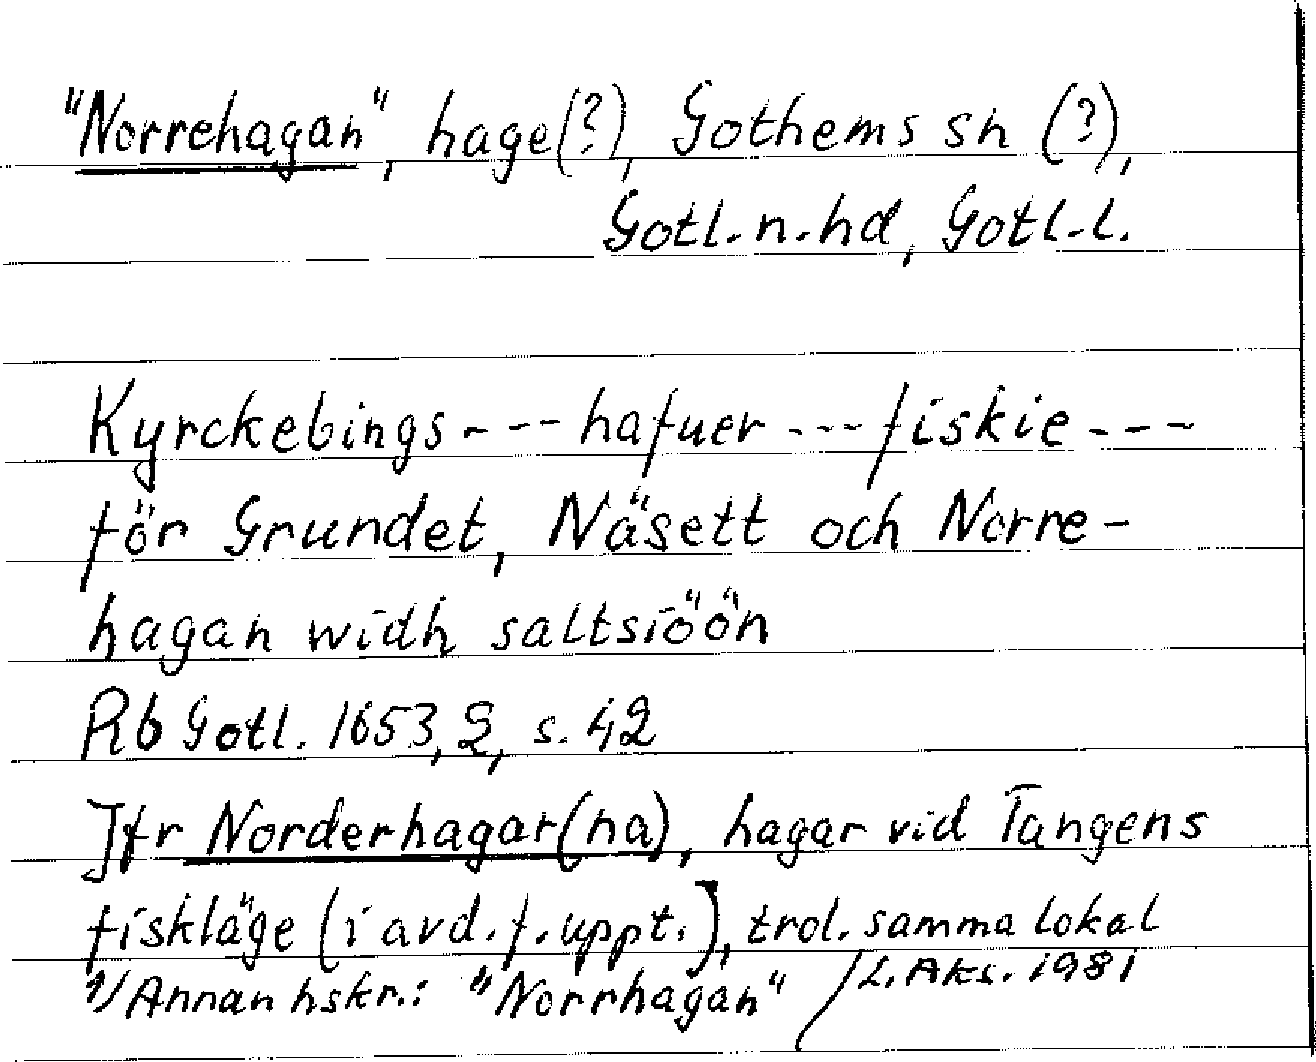 "Norrehagan", hage(?), Gothems sn (?),
Gotl. n. hd, Gotl. l.
Kyrckebings --- hafuer --- fiskie ---
för Grundet, Näsett och Norre-
hagan widh saltsiöön
Rb Gotl. 1653, 2, s. 42
Jfr Norderhagar(na), hagar vid Tangens
fiskläge (i avd. f. uppt.), trol. samma lokal
1/ Annan hskr.: "Norrhagan" / L. Aks. 1981